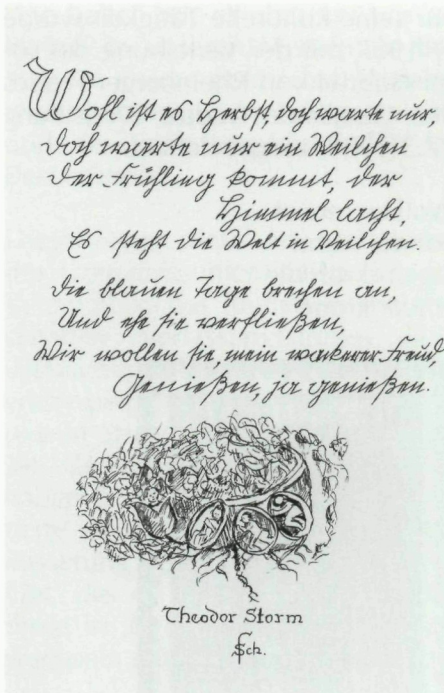 Wohl ist es Herbst, doch warte nur,
Doch warte nur ein Weilchen
Der Frühling kommt, der
Himmel lacht,
Es steht die Welt in Veilchen.
Die blauen Tage brechen an,
Und ehe sie verfließen,
Wir wollen sie, mein wackerer Freud,
Genießen, ja genießen.
Theodor Storm
Sch.